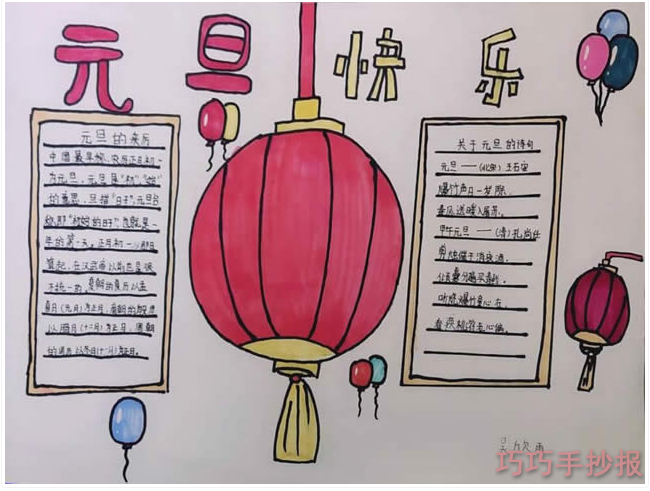 元旦快乐
元旦的来历
中国最早称农历正月初一
为元旦，元旦是“初”“始”
的意思，旦指“日子”，元旦合
称即“初始的日子”，也就是一
年的第一天。正月初一
算起，在汉武帝以前也是很
不统一的，夏朝的夏历以孟
春月（元月）为正月，商朝的殷历
以腊月（十二月）为正月，周朝
的周历以冬月（十一月）为正月。
关于元旦的诗句
元旦——（北宋）王石安
爆竹声曰一岁除，
春风送暖入屠苏。
甲午元旦——（清）孔尚任
剪烛催干消夜酒，
倾囊分遍买春钱。
听烧爆竹童心在，
看换桃符老心偏。
吴欣雨
巧巧手抄报